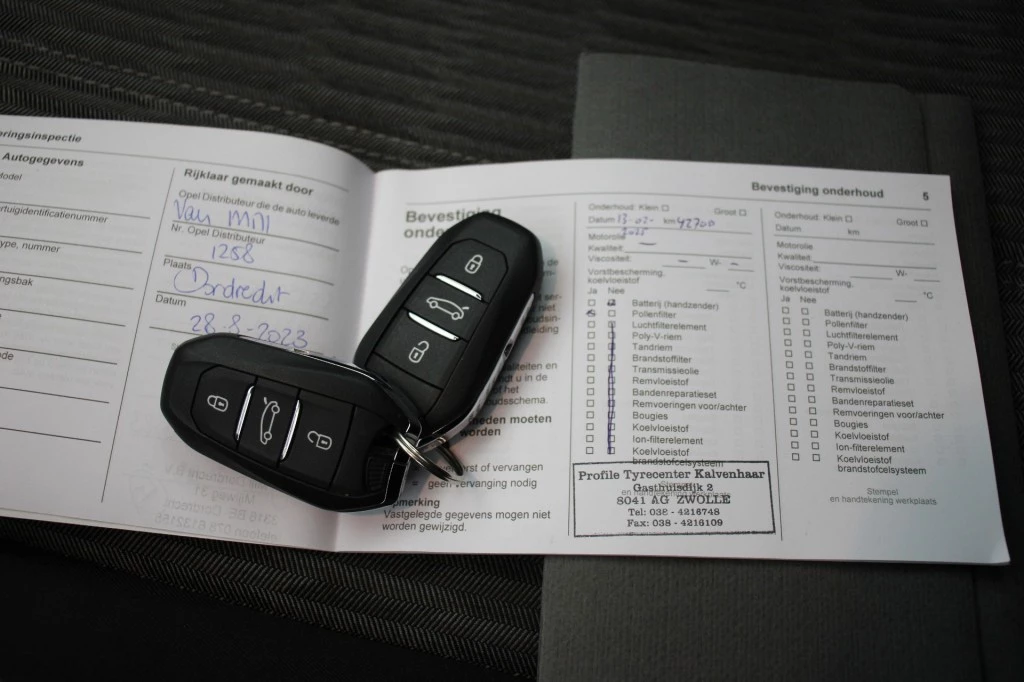 eringsinspectie
Autogegevens
Model
rtuigidentificatienummer
ype, nummer
ngsbak
ode
Rijklaar gemaakt door
Opel Distributeur die de auto leverde
Van Mill
Nr. Opel Distributeur
1258
Plaats
Dordrecht
Datum
28-8-2023
Bevestiging
onde
aliteiten en
dt u in de
of het
oudsschema.
heden moeten
worden
erst of vervangen
= geen vervanging nodig
Opmerking
Vastgelegde gegevens mogen niet
worden gewijzigd.
Bevestiging onderhoud 5
Onderhoud: Klein Groot
Datum 13-02-2025 km 42700
Motorolie
Kwaliteit: —
Viscositeit: — W- —
Vorstbescherming,
koelvloeistof °C
Ja Nee
Batterij (handzender)
Pollenfilter
Luchtfilterelement
Poly-V-riem
Tandriem
Brandstoffilter
Transmissieolie
Remvloeistof
Bandenreparatieset
Remvoeringen voor/achter
Bougies
Koelvloeistof
Ion-filterelement
Koelvloeistof
brandstofcelsysteem
Profile Tyrecenter Kalvenhaar
Gasthuisdijk 2
8041 AG ZWOLLE
Tel: 038 - 4216748
Fax: 038 - 4216109
Onderhoud: Klein Groot
Datum km
Motorolie
Kwaliteit:
Viscositeit: W-
Vorstbescherming,
koelvloeistof °C
Ja Nee
Batterij (handzender)
Pollenfilter
Luchtfilterelement
Poly-V-riem
Tandriem
Brandstoffilter
Transmissieolie
Remvloeistof
Bandenreparatieset
Remvoeringen voor/achter
Bougies
Koelvloeistof
Ion-filterelement
Koelvloeistof
brandstofcelsysteem
Stempel
en handtekening werkplaats